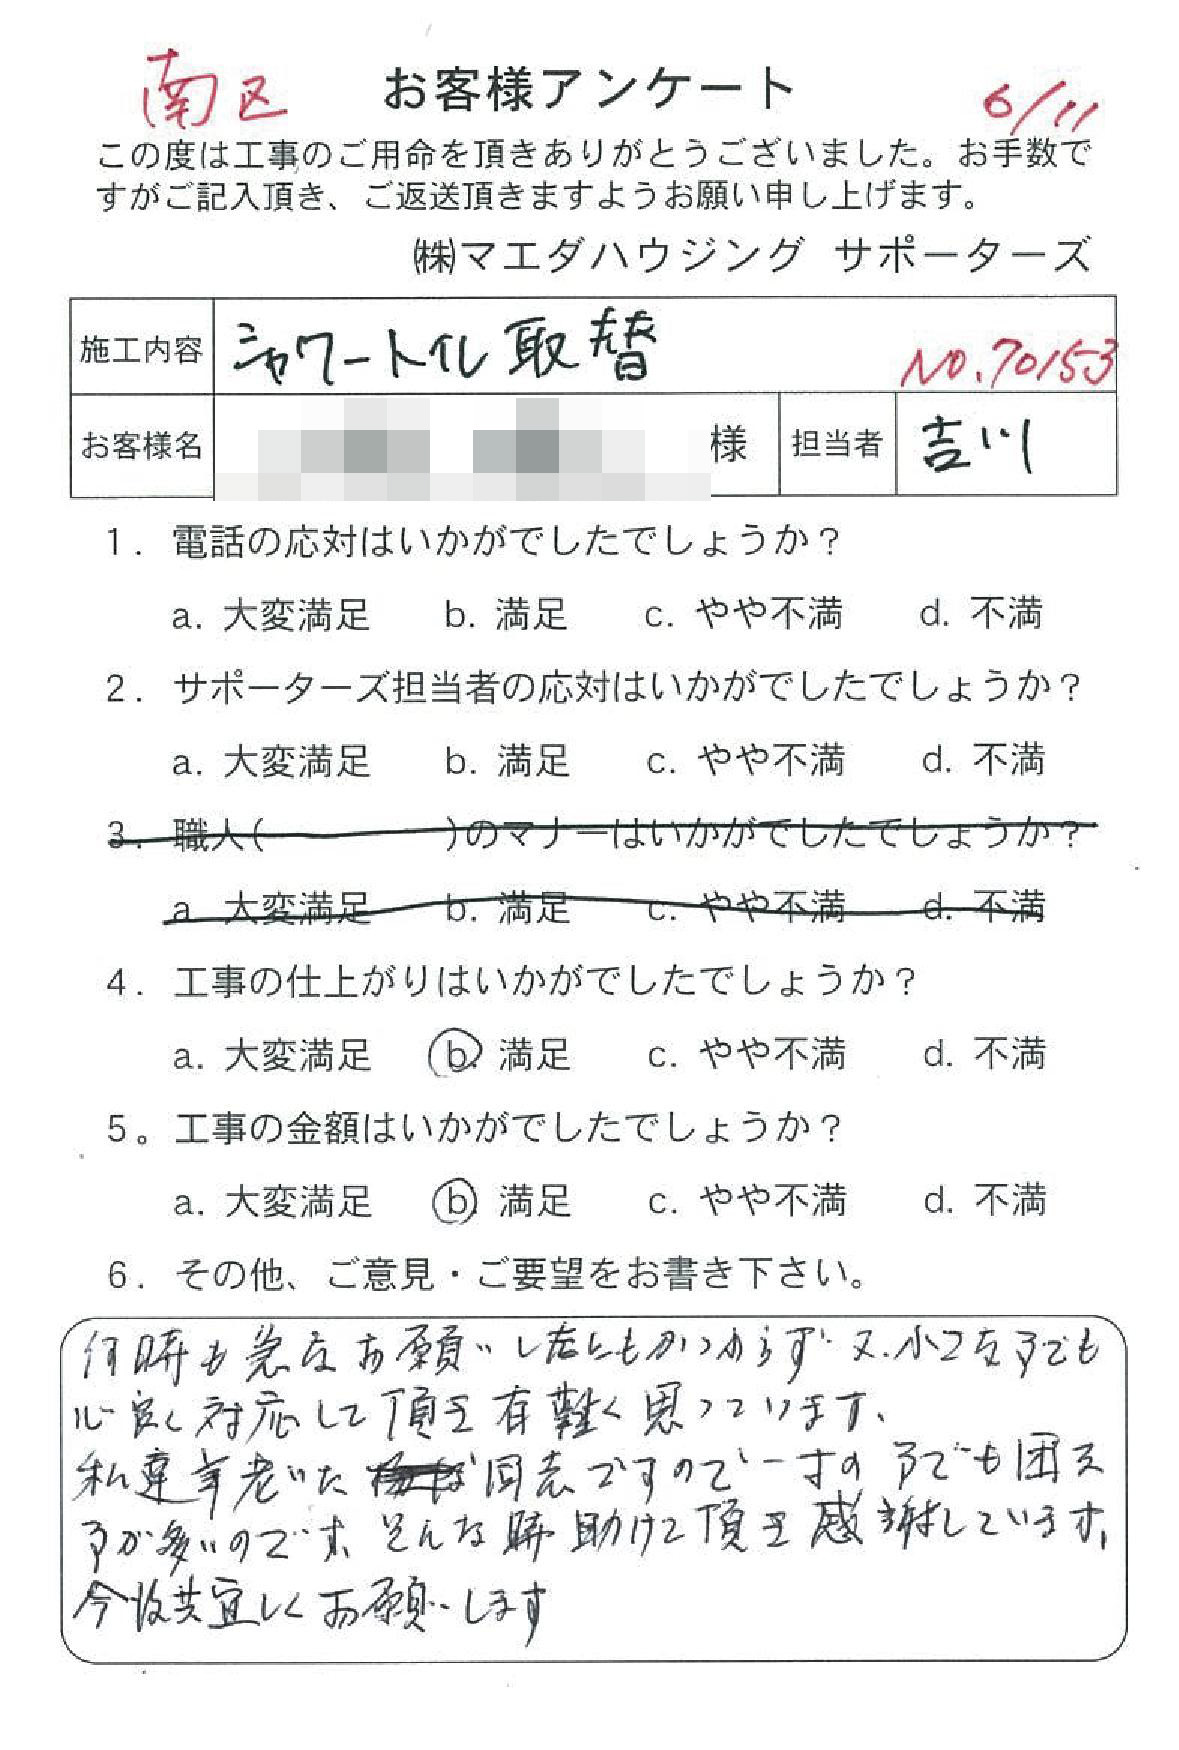 南区 お客様アンケート 6/11
この度は工事のご用命を頂きありがとうございました。お手数で
すがご記入頂き、ご返送頂きますようお願い申し上げます。
㈱マエダハウジング サポーターズ
施工内容 シャワートイレ取替 NO.70153
お客様名 様 担当者 吉川
1. 電話の応対はいかがでしたでしょうか？
a. 大変満足 b. 満足 c. やや不満 d. 不満
2. サポーターズ担当者の応対はいかがでしたでしょうか？
a. 大変満足 b. 満足 c. やや不満 d. 不満
3. 職人( )のマナーはいかがでしたでしょうか？
a. 大変満足 b. 満足 c. やや不満 d. 不満
4. 工事の仕上がりはいかがでしたでしょうか？
a. 大変満足 b. 満足 c. やや不満 d. 不満
5。工事の金額はいかがでしたでしょうか？
a. 大変満足 b. 満足 c. やや不満 d. 不満
6. その他、ご意見・ご要望をお書き下さい。
何時も急なお願いしたにもかかわらず又、小さな事でも
心良く対応して頂き有難く思っています、
私達年老いた 同志ですので一寸の事でも困る
事が多いのです、そんな時助けて頂き感謝しています、
今後共宜しくお願いします